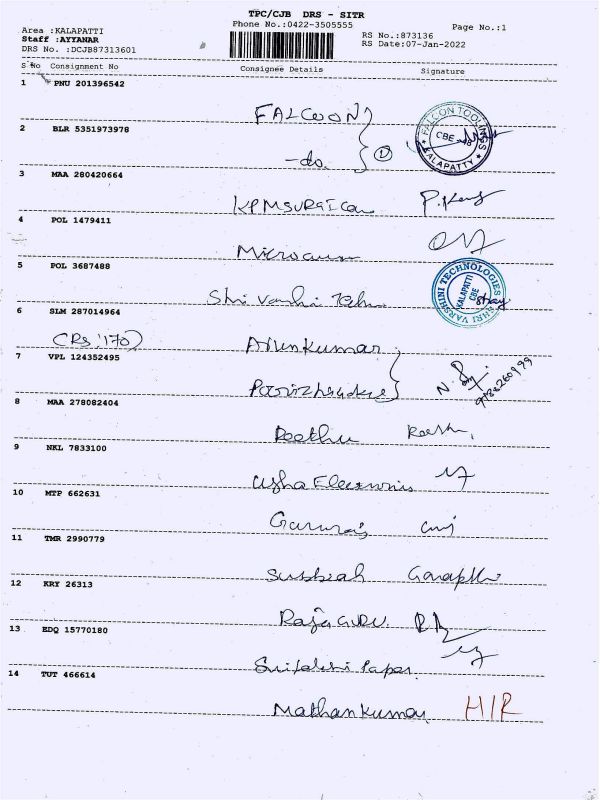 TPC/CJB DRS - SITR
Phone No.:0422-3505555
Page No.:1
Area :KALAPATTI
Staff :AYYANAR
DRS No. :DCJB87313601
RS No.:873136
RS Date:07-Jan-2022
S No Consignment No Consignee Details Signature
1 PNU 201396542
FALCOON
2 BLR 5351973978
-do.
1
FALCON TOOLINGS
CBE
KALAPATTY
3 MAA 280420664
4 POL 1479411
5 POL 3687488
Shri
SHRI VARSHINI TECHNOLOGIES
KALAPATTI
CBE
6 SLM 287014964
(Rs.'170)
Arunkumar
7 VPL 124352495
8 MAA 278082404
Reethu
9 NKL 7833100
Usha Electronics
10 MTP 662631
11 TMR 2990779
Subbiah
12 KRY 26313
Raja GURU
13 EDQ 15770180
14 TUT 466614
Mathankumar
H/R